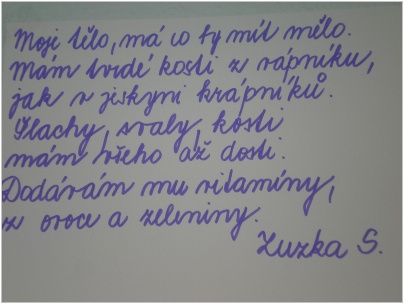 Moje tělo, má co by mít mělo.
Mám tvrdé kosti z vápníku,
jak v jeskyni krápníků.
Šlachy, svaly, kosti
mám všeho až dosti.
Dodávám mu vitamíny,
z ovoce a zeleniny.
Zuzka S.